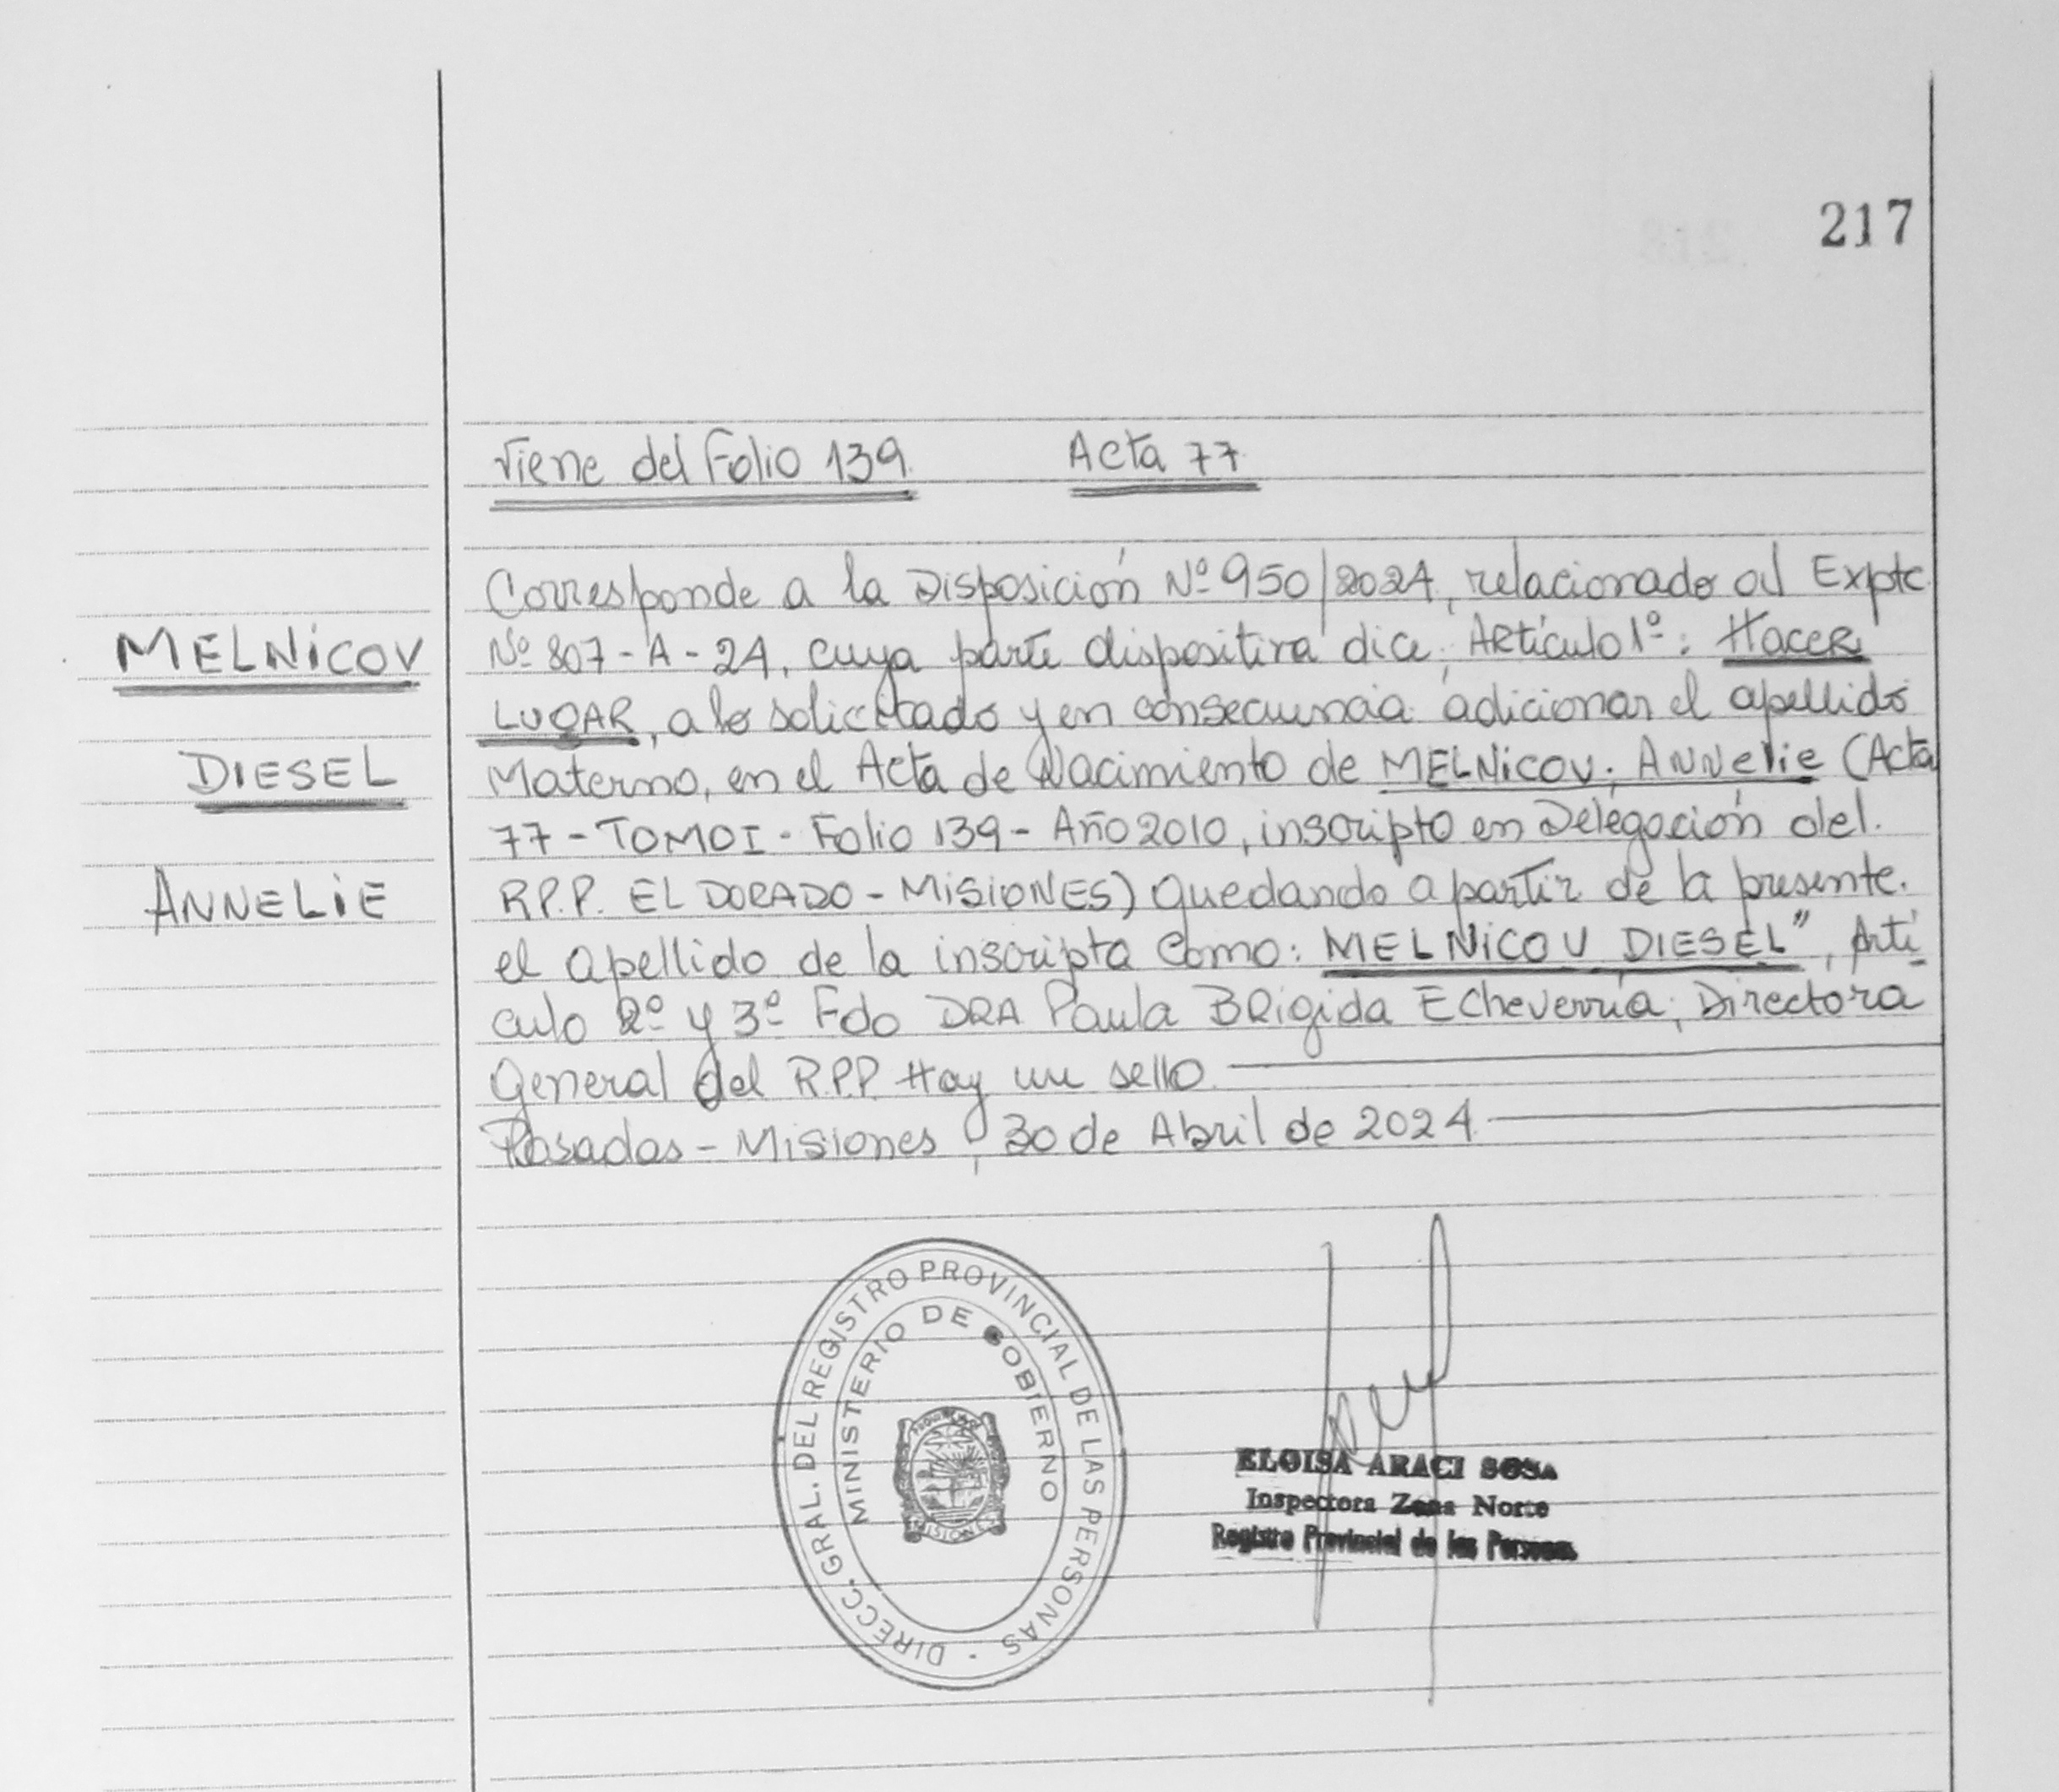 217
Viene del Folio 139. Acta 77.
Corresponde a la Disposición Nº 950/2024, relacionado al Expte.
MELNICOV
Nº 807-A-24, cuya parte dispositiva dice; Artículo 1º: HACER
LUGAR, a lo solicitado y en consecuencia adicionar el apellido
DIESEL
Materno, en el Acta de Nacimiento de MELNICOV, ANNelie (Acta
77 - TOMO I - Folio 139 - Año 2010, inscripto en Delegación del.
ANNELIE
R.P.P. EL DORADO - MISIONES) Quedando a partir de la presente.
el apellido de la inscripta como: MELNICOV DIESEL", Artí
culo 2º y 3º Fdo DRA Paula BRigida Echeverría; Directora
General del R.P.P Hay un sello.
Posadas - Misiones, 30 de Abril de 2024.
DIRECC. GRAL. DEL REGISTRO PROVINCIAL DE LAS PERSONAS
MINISTERIO DE GOBIERNO
ELOISA ARACI SOSA
Inspectora Zona Norte
Registro Provincial de las Personas